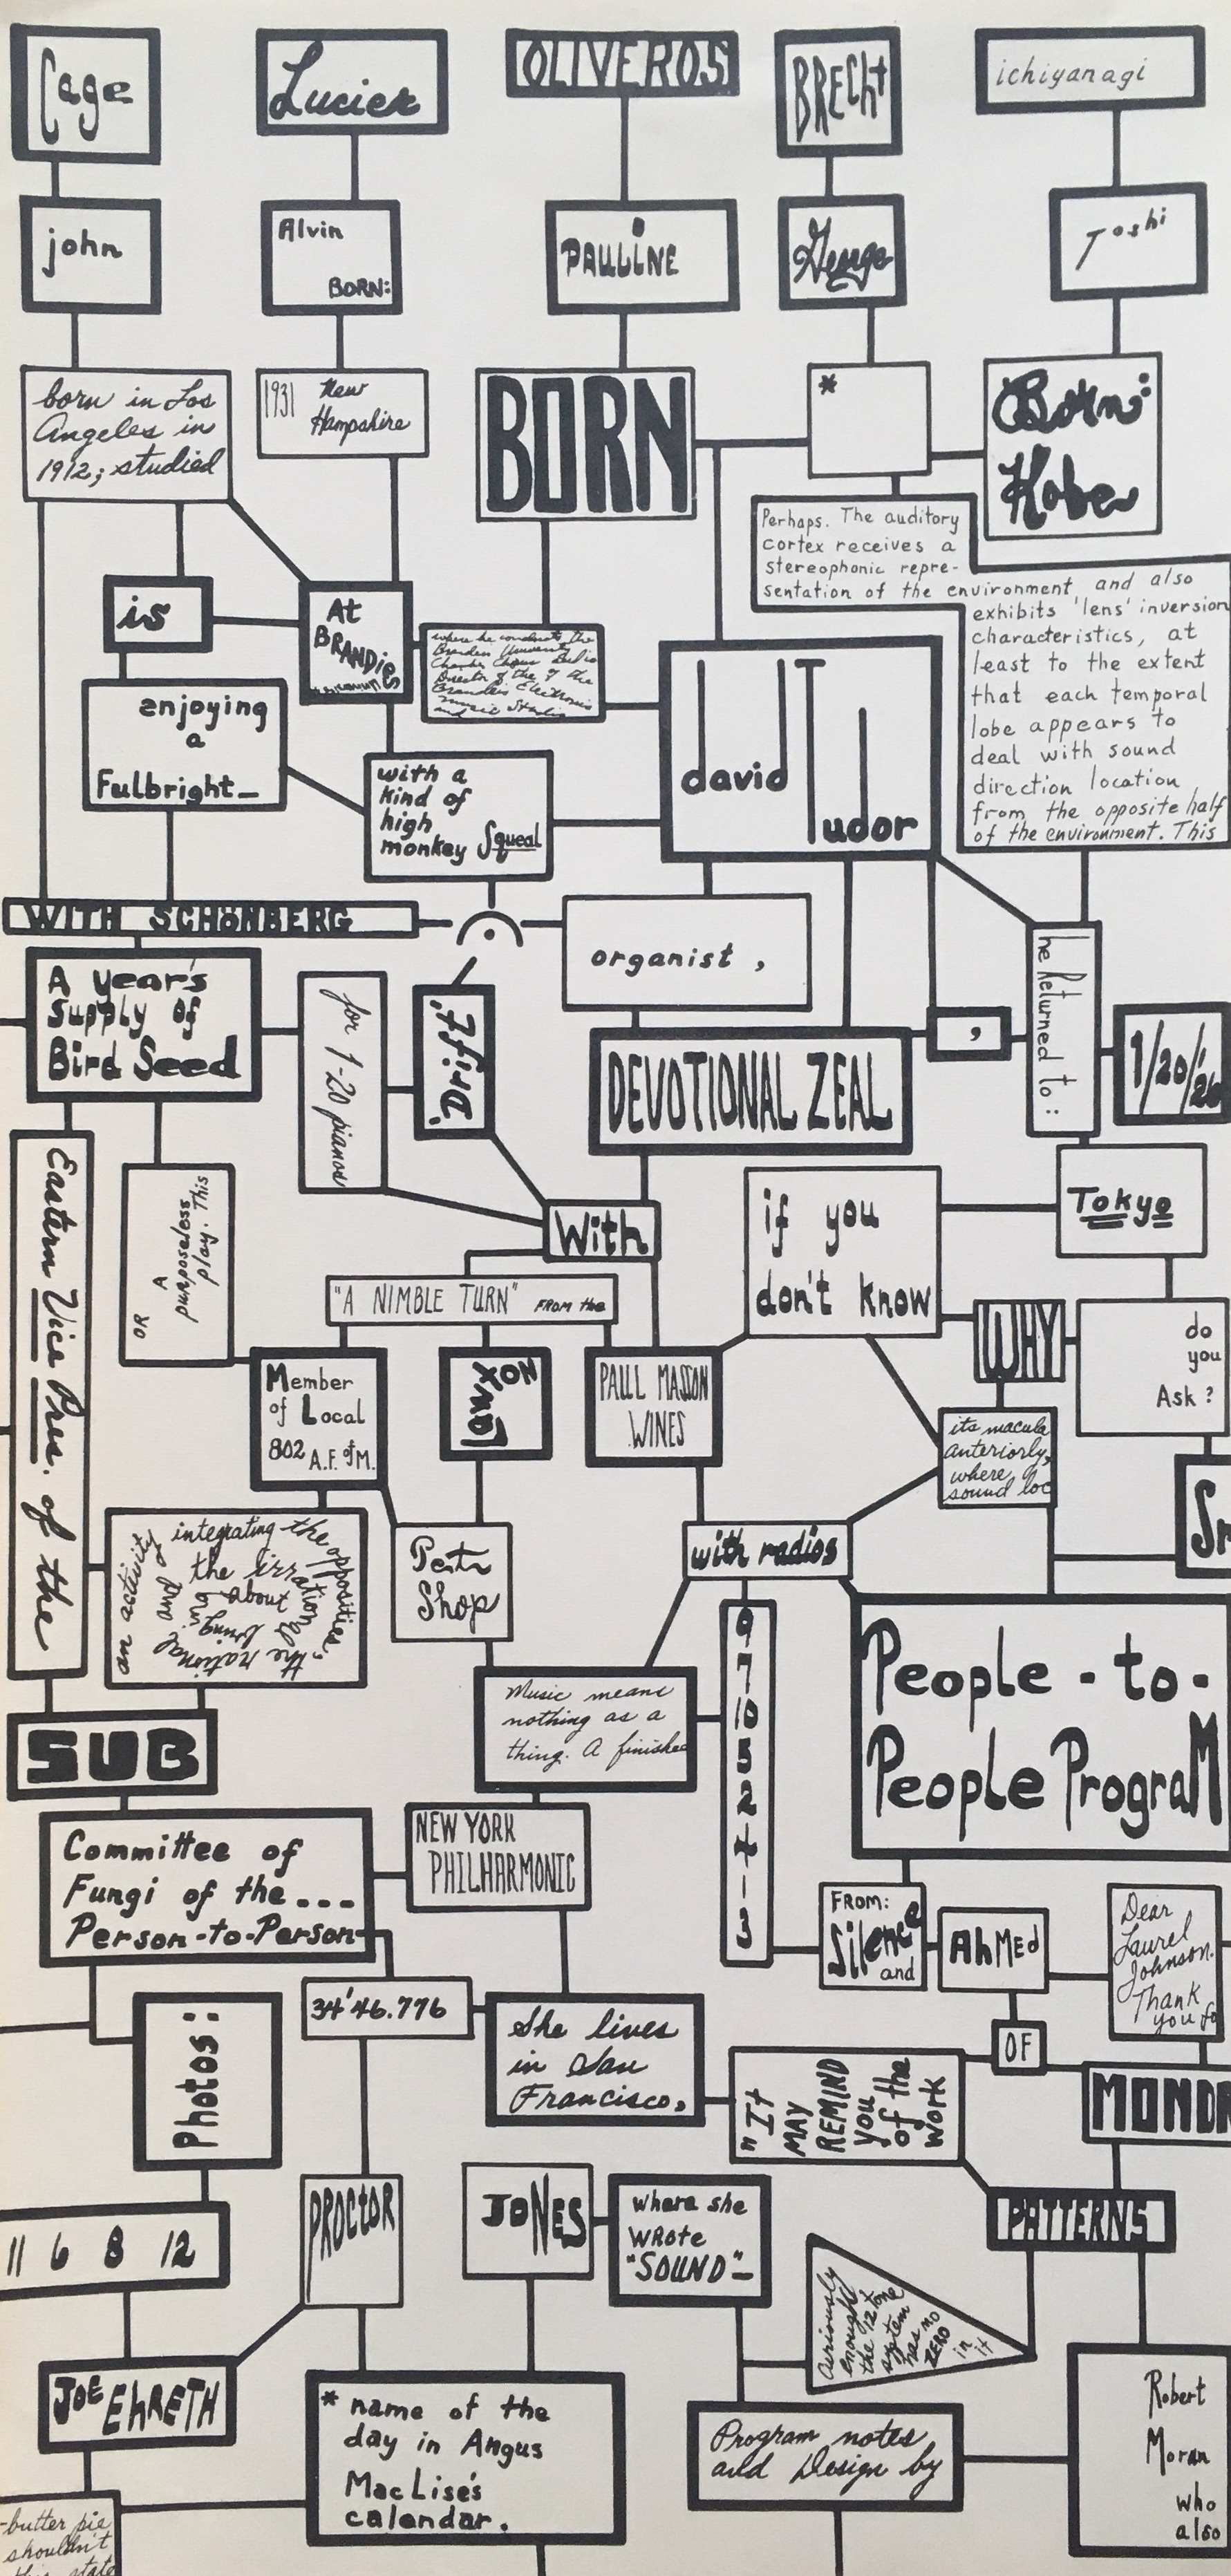 Cage
Lucier
OLIVEROS
BRECht
ichiyanagi
john
Alvin
BORN:
PAULINE
George
Toshi
born in Los
Angeles in
1912; studied
1931 New
Hampshire
BORN
*
Born:
Kobe
Perhaps. The auditory
cortex receives a
stereophonic repre-
sentation of the environment, and also
exhibits 'lens' inversion
characteristics, at
least to the extent
that each temporal
lobe appears to
deal with sound
direction location
from the opposite half
of the environment. This
is
At
BRANDIES
where he conducts the
Brandeis University
Chamber Chorus
Director of the
Brandeis Electronic
Music Studio
and
enjoying
a
Fulbright_
with a
kind of
high
monkey Squeal
david Tudor
WITH SCHÖNBERG
organist,
he Returned to:
A year's
Supply of
Bird Seed
for 1-20 pianos
Driff.
DEVOTIONAL ZEAL
,
1/20/'26
Eastern Vice Pres. of the
OR
A
purposeless
play. This
With
if you
don't know
Tokyo
"A NIMBLE TURN" FROM the
WHY
do
you
Ask?
Member
of Local
802 A.F. of M.
KNOX
PAUL MASSON
WINES
its macula
anteriorly,
where
sound loc
an activity
integrating the opposites,
the rational and
the irrational
bring
about
Pet
Shop
with radios
People-to-
People PrograM
Music means
nothing as a
thing. A finished
9
7
10
5
2
4
-
3
SUB
Committee of
Fungi of the...
Person-to-Person
NEW YORK
PHILHARMONIC
FROM:
Silence
and
AhMEd
Dear
Laurel
Johnson.
Thank
you fo
34'46.776
She lives
in San
Francisco,
OF
Photos:
"It
MAY
REMIND
you
of the
work
MOND
PROCtOR
JONES
where she
wRote
"SOUND"_
PATTERNS
11 6 8 12
Curiously
enough
the 12 tone
system
has no
ZERO
in
it
JOE EHRETH
* name of the
day in Angus
MacLise's
calendar.
Program notes
and Design by
Robert
Moran
who
also
-butter pie
shouldn't
this state